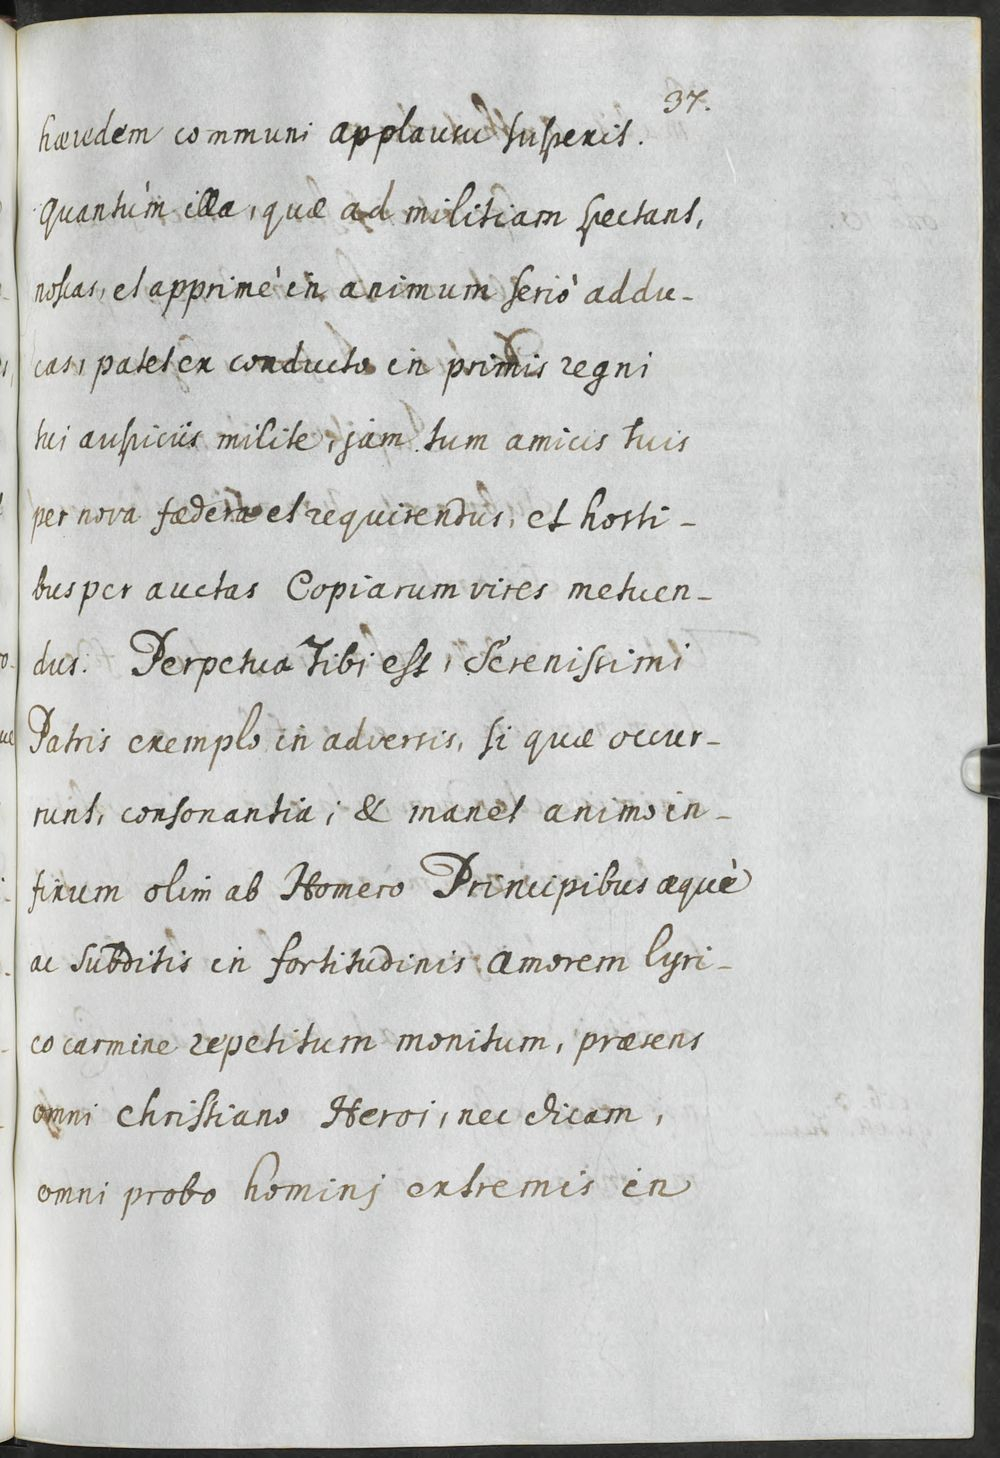 37.
hæredem communi applausu suspexit.
Quantùm illa, quæ ad militiam spectant,
noscas, et apprimè in animum seriò addu-
cas, patet ex conducto in primis regni
tui auspiciis milite, jam tum amicis tuis
per nova fœdera et requirendus, et hosti-
bus per auctas Copiarum vires metuen-
dus. Perpetua Tibi est, Serenissimi
Patris exemplo in adversis, si quæ occur-
runt, consonantia; & manet animo in-
fixum olim ab Homero Principibus æquè
ac Subditis in fortitudinis amorem lyri-
co carmine repetitum monitum, præsens
omni christiano Heroi, nec dicam,
omni probo homini extremis in